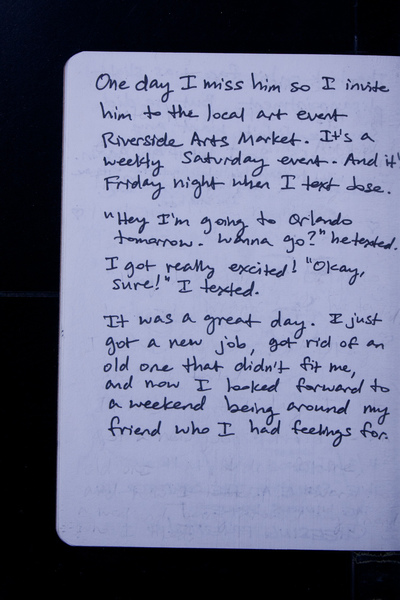 One day I miss him so I invite
him to the local art event
Riverside Arts Market. It's a
weekly Saturday event. And it'
Friday night when I text Jose.
"Hey I'm going to Orlando
tomorrow. Wanna go?" he texted.
I got really excited! "Okay,
sure!" I texted.
It was a great day. I just
got a new job, got rid of an
old one that didn't fit me,
and now I looked forward to
a weekend being around my
friend who I had feelings for.